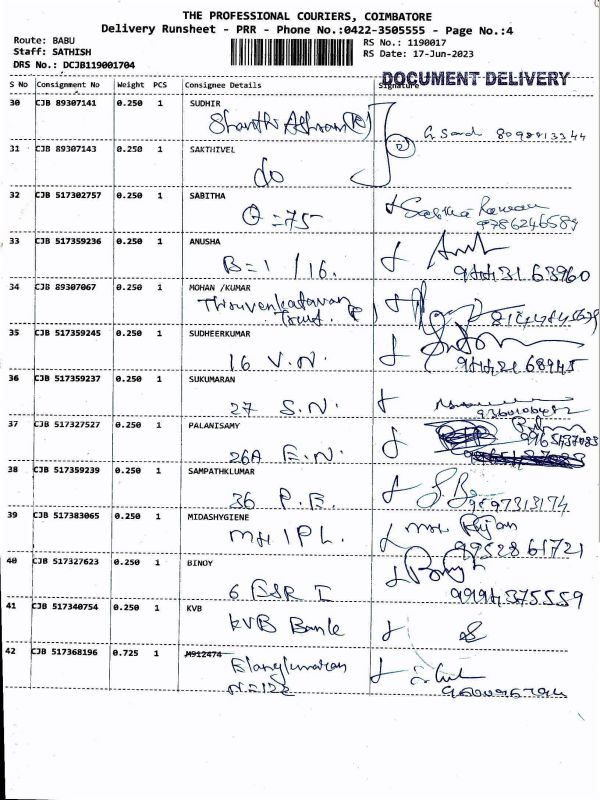 THE PROFESSIONAL COURIERS, COIMBATORE
Delivery Runsheet - PRR - Phone No.:0422-3505555 - Page No.:4
Route: BABU
RS No.: 1190017
Staff: SATHISH
RS Date: 17-Jun-2023
DRS No.: DCJB119001704
DOCUMENT DELIVERY
S No Consignment No Weight PCS Consignee Details Signature
30 CJB 89307141 0.250 1 SUDHIR
8098813344
31 CJB 89307143 0.250 1 SAKTHIVEL
do
32 CJB 517302757 0.250 1 SABITHA
Q =75 Sabitha
9786246589
33 CJB 517359236 0.250 1 ANUSHA
B=1 /16. 94443163960
34 CJB 89307067 0.250 1 MOHAN /KUMAR
Thiruvenkatavan
Trust.
35 CJB 517359245 0.250 1 SUDHEERKUMAR
16 V.N. 94442168945
36 CJB 517359237 0.250 1 SUKUMARAN
27 S.N.
37 CJB 517327527 0.250 1 PALANISAMY
26A E.N.
38 CJB 517359239 0.250 1 SAMPATHKLUMAR
36 P.E. 9597313174
39 CJB 517383065 0.250 1 MIDASHYGIENE
MH IPL. 9952861721
40 CJB 517327623 0.250 1 BINOY
6 ESR I 9994375559
41 CJB 517340754 0.250 1 KVB
KVB Bank
42 CJB 517368196 0.725 1 M912474
Elangkumaran